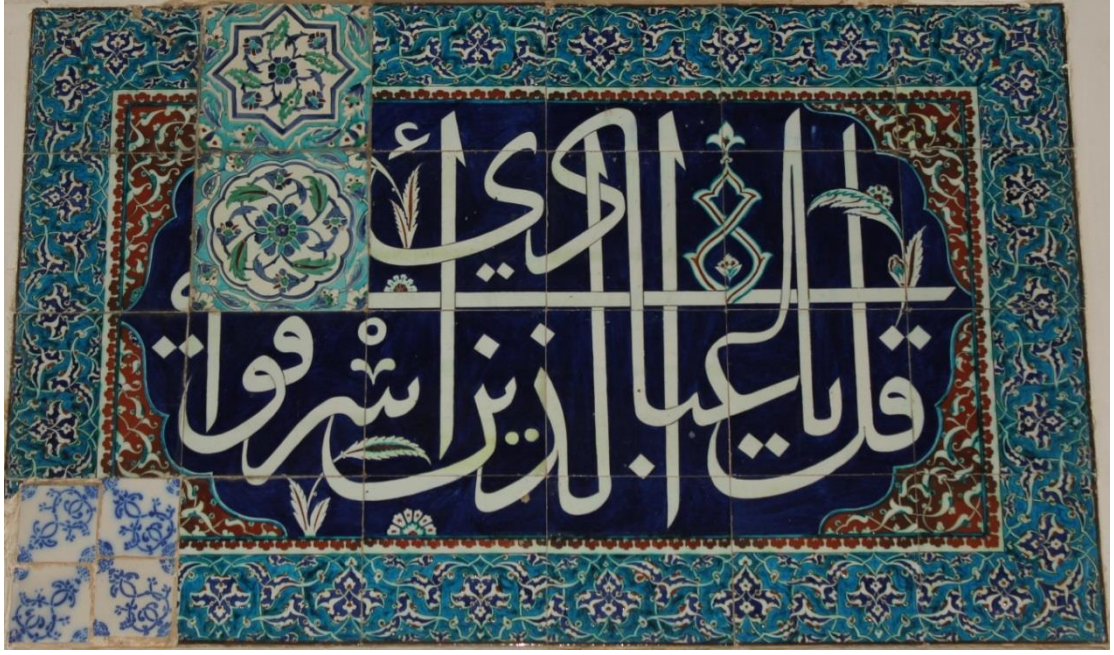 قل يا عبادي الذين أسرفوا